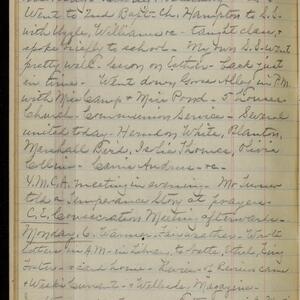 Went to 2nd Bapt. Ch. Hampton to S.S.
with Williams &c - taught class &
spoke briefly to school - My own S.S. went
pretty well. lesson on Esther - Lack just
in time - Went down Goose Alley in P.M.
with Miss Camp & Miss Pond - 5 houses
Church - Communion Service - Several
united today - Herndon White, Blanton,
Marshall Bird, Leslie Thomas, Olivia
Collins - Carrie Andrus &c -
Y.M.C.A. meeting in evening - Mr Turner
told a Temperance Story at prayers -
C.E. Consecration Meeting afterwards -
Monday, 6. Warmer, Fair weather - Wrote
letters in A.M. in Library to Lottie, Ethel,
Foster - & Card home -
& Week's Current - & Wellesley Magazine -